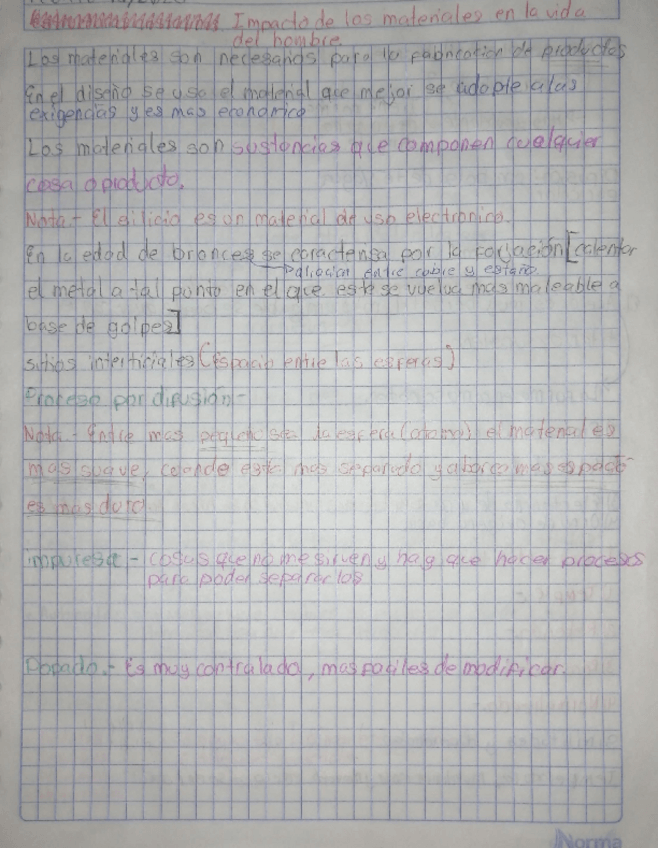 Impacto de los materiales en la vida
del hombre.
Los materiales son necesarios para la fabricacion de productos
En el diseño se usa el material que mejor se adapte a las
exigencias y es mas economico
Los materiales son sustancias que componen cualquier
cosa o producto.
Nota.- El silicio es un material de uso electronico.
En la edad de bronce se caracteriza por la forjación [calentar
aliacion entre cobre y estaño
el metal a tal punto en el que este se vuelva mas maleable a
base de golpes]
sitios intersticiales (espacio entre las esferas)
Proceso por difusión-
Nota - Entre mas pequeña sea la esfera (atomo) el material es
mas suave, cuando esta mas separado y abarca mas espacio
es mas duro.
impureza - cosas que no me sirven y hay que hacer procesos
para poder separarlos
Dopado.- Es muy contralado, mas faciles de modificar.
Norma